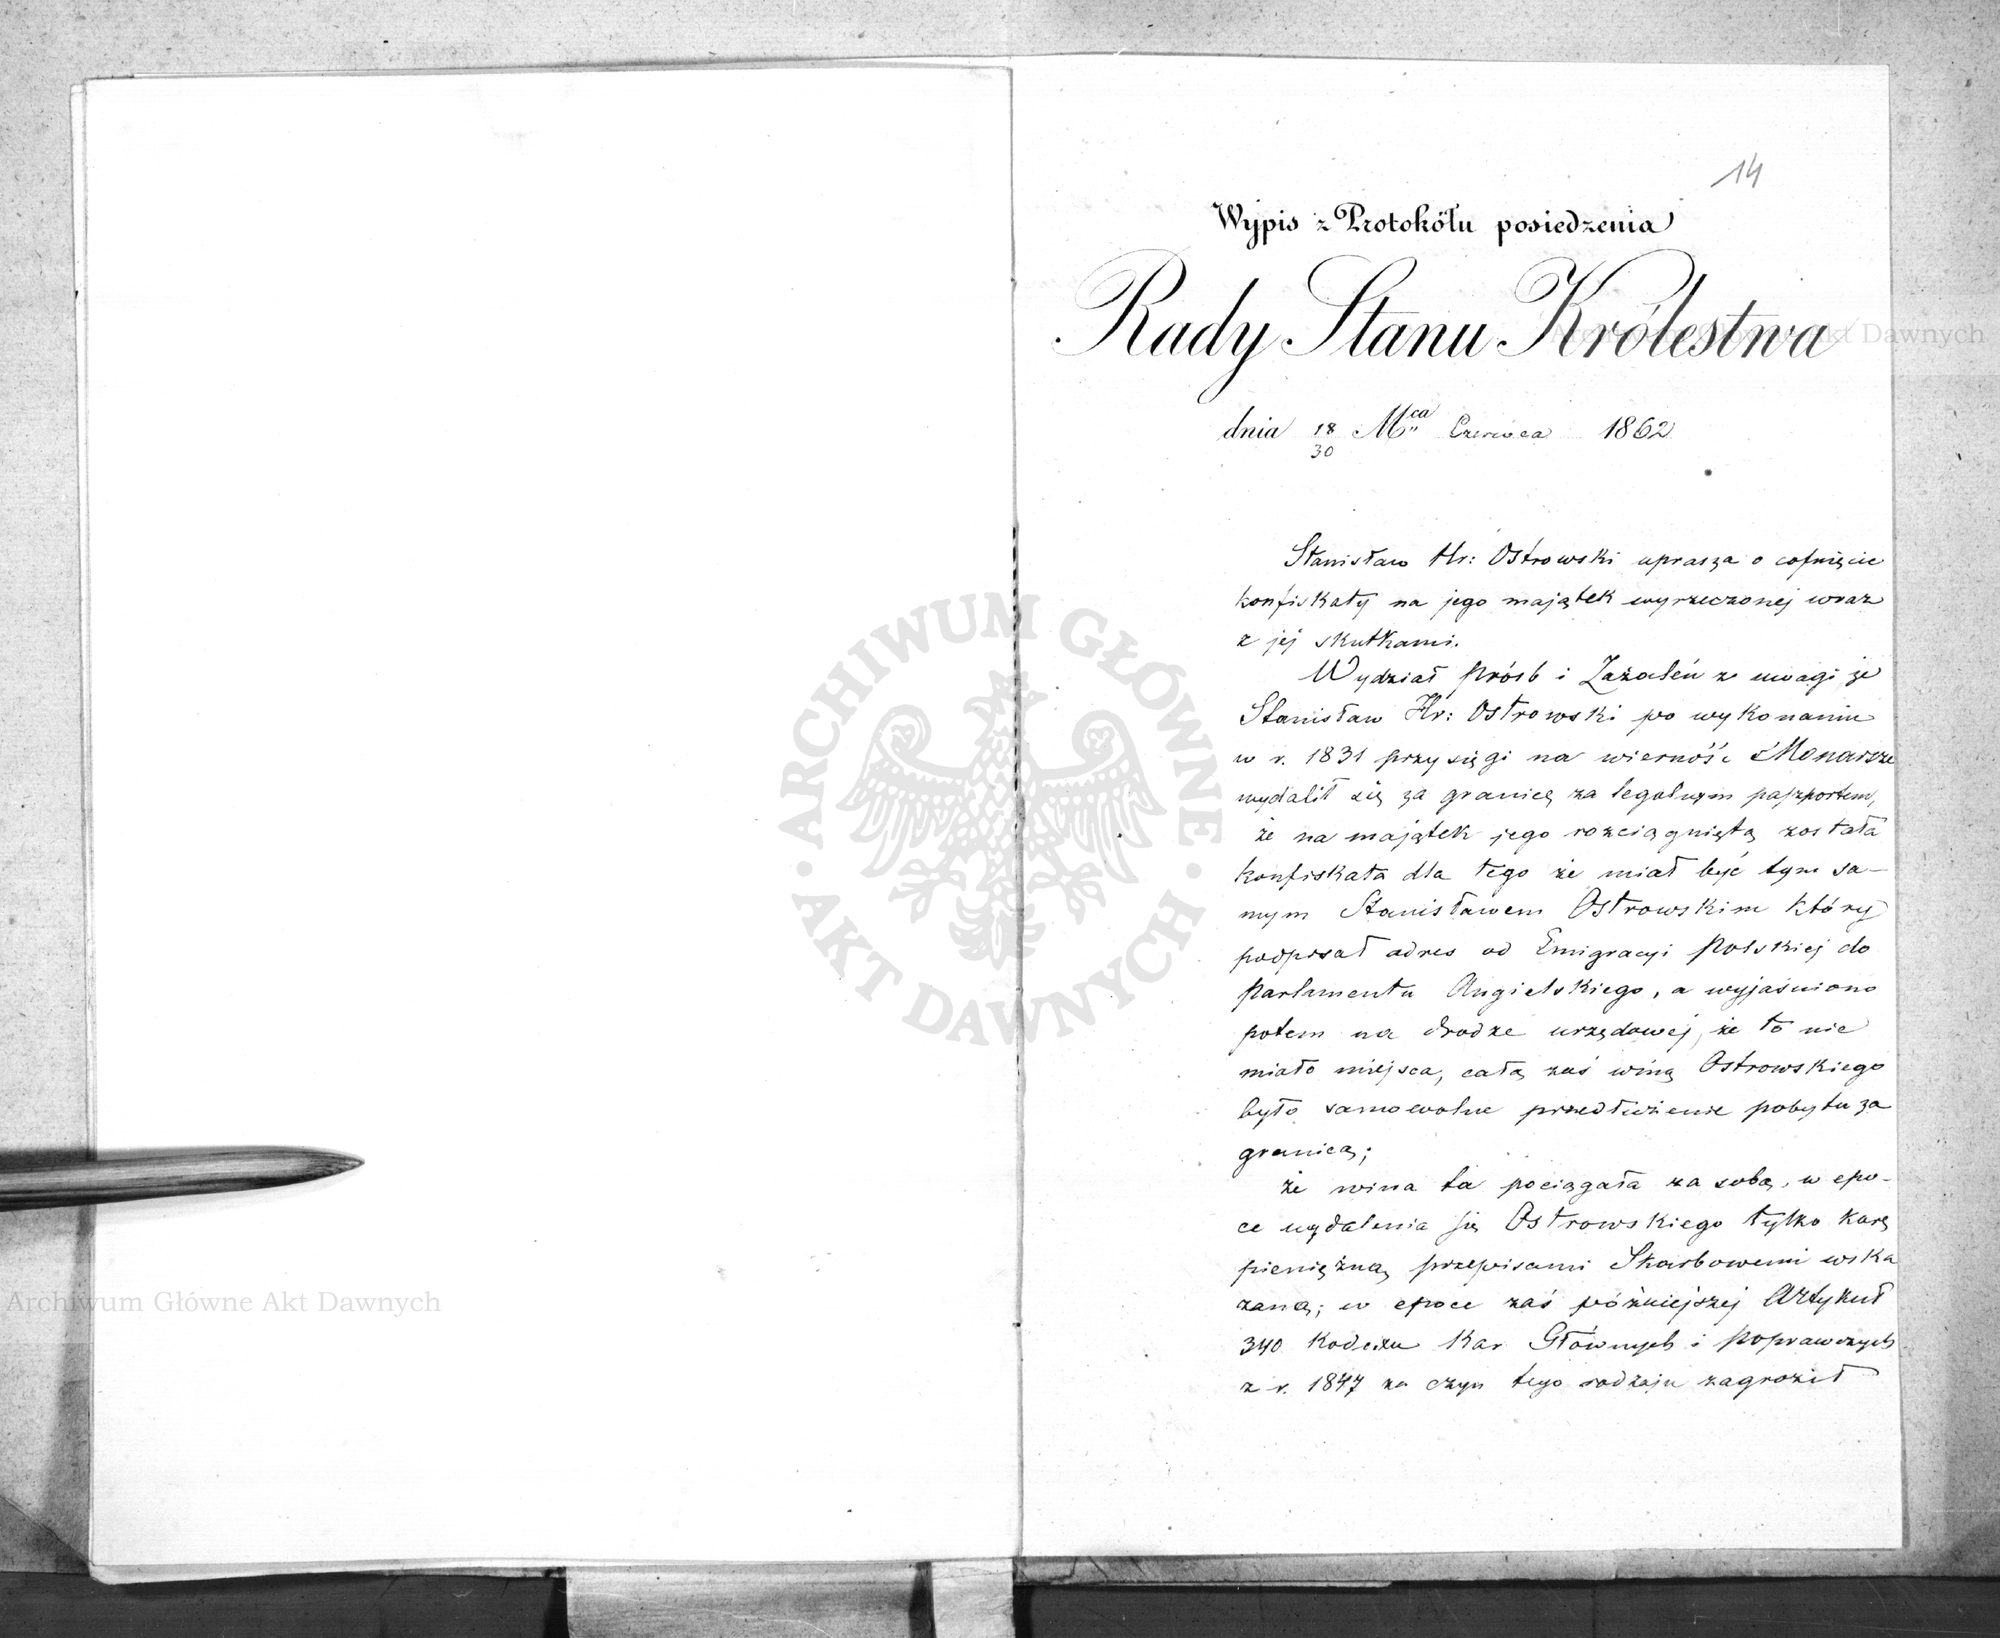 14
Wypis z Protokółu posiedzenia
Rady Stanu Królestwa
dnia 18/30 Mca Czerwca 1862
Stanisław Hr: Ostrowski uprasza o cofnięcie
konfiskaty na jego majątek wyrzeczonej wraz
z jej skutkami.
Wydział Próśb i Zażaleń z uwagi że
Stanisław Hr: Ostrowski po wykonaniu
w r. 1831 przysięgi na wierność Monarsze
wydalił się za granicę za legalnym paszportem,
że na majątek jego rozciągniętą została
konfiskata dla tego że miał być tym sa-
mym Stanisławem Ostrowskim który
podpisał adres od Emigracyi Polskiej do
Parlamentu Angielskiego, a wyjaśniono
potem na drodze urzędowej, że to nie
miało miejsca, całą zaś winą Ostrowskiego
było samowolne przedłużenie pobytu za
granicą;
że wina ta pociągała za sobą, w epo-
ce wydalenia się Ostrowskiego tylko karę
pieniężną przepisami Skarbowemi wska
zaną; w epoce zaś późniejszej Artykuł
340 Kodexu Kar Głównych i Poprawczych
z r. 1847 za czyn tego rodzaju zagroził
ARCHIWUM GŁÓWNE AKT DAWNYCH
Archiwum Główne Akt Dawnych
Archiwum Główne Akt Dawnych